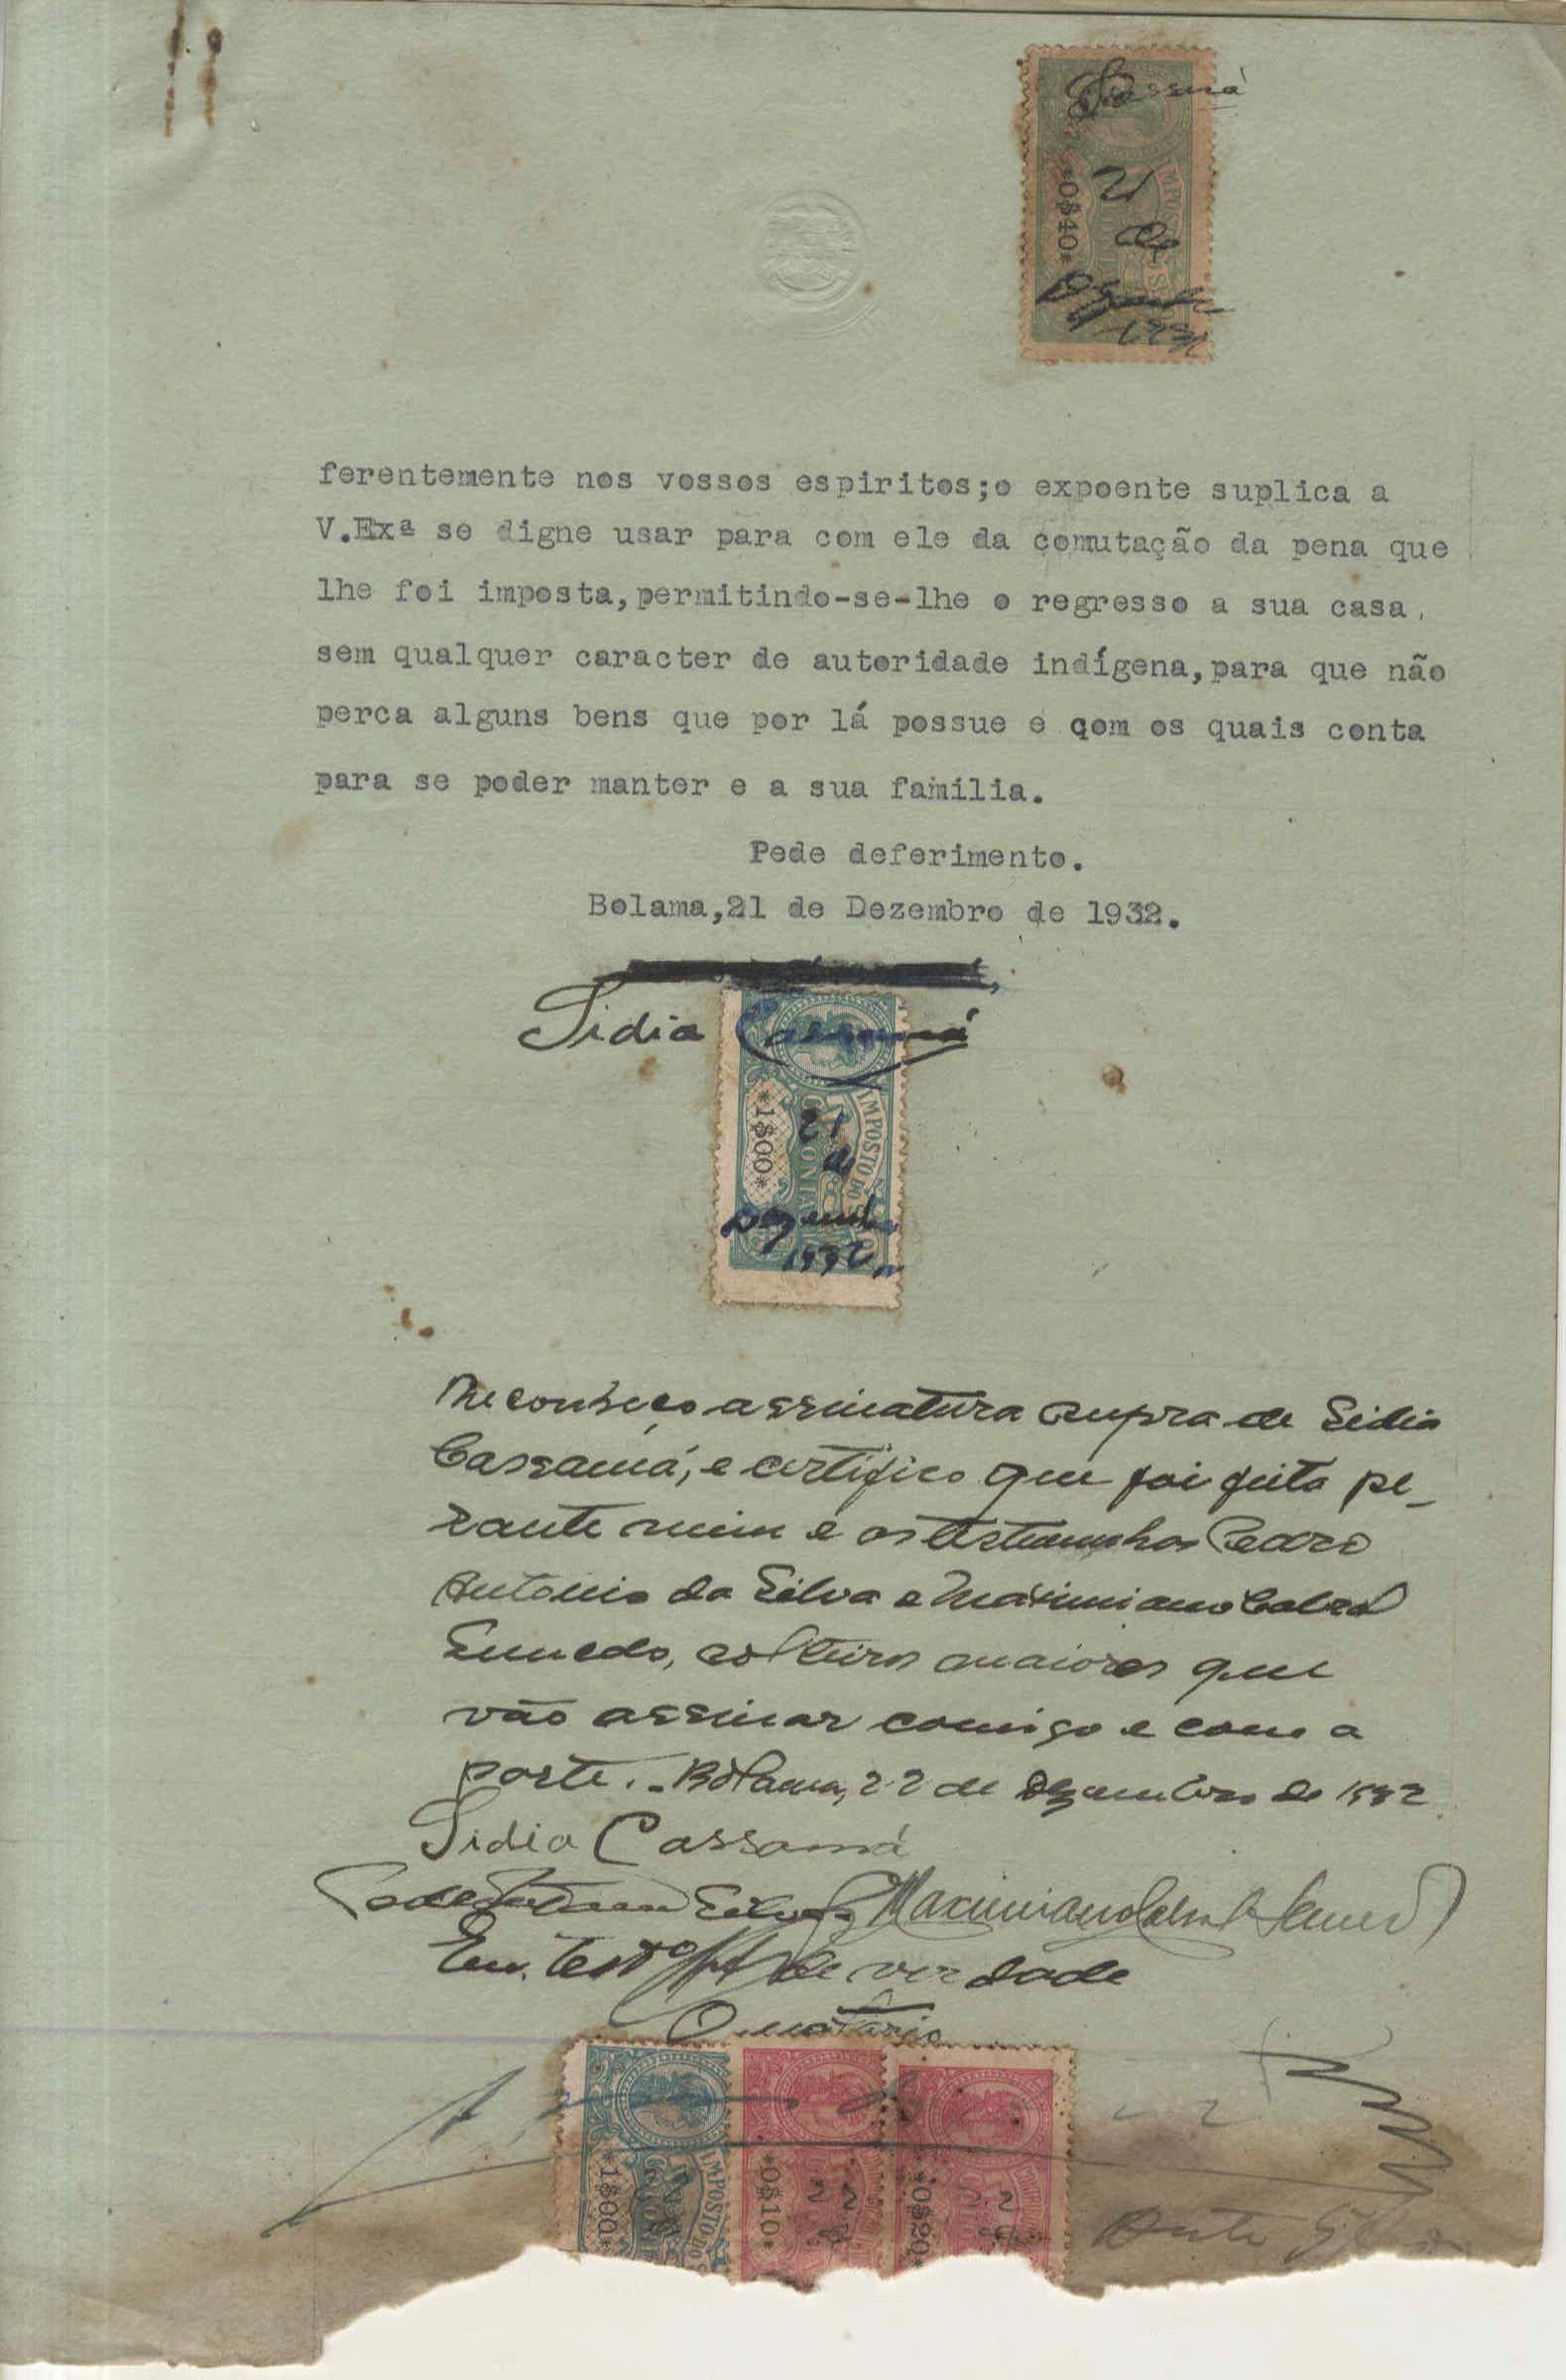 Cassamá
21
de
Dezembro
1932
*0$40*
ferentemente nos vossos espiritos;o expoente suplica a
V.Exª se digne usar para com ele da comutação da pena que
lhe foi imposta,permitindo-se-lhe o regresso a sua casa,
sem qualquer caracter de autoridade indígena,para que não
perca alguns bens que por lá possue e com os quais conta
para se poder manter e a sua familia.
Pede deferimento.
Bolama,21 de Dezembro de 1932.
Sidia Cassamá
IMPOSTO DO
*1$00*
21
de
Dezembro
1932
Reconheço a assinatura supra de Sidia
Cassamá, e certifico que foi feita pe-
rante mim e as testemunhas Pedro
Antonio da Silva e Maximiano Cabral
Semedo, solteiros maiores que
vão assinar comigo e com a
parte. - Bolama, 22 de Dezembro de 1932
Sidia Cassamá
Silva Maximiano Cabral Semedo
Em testº de verdade
O notário
IMPOSTO DO
*1$00*
*0$10*
*0$20*
22
22